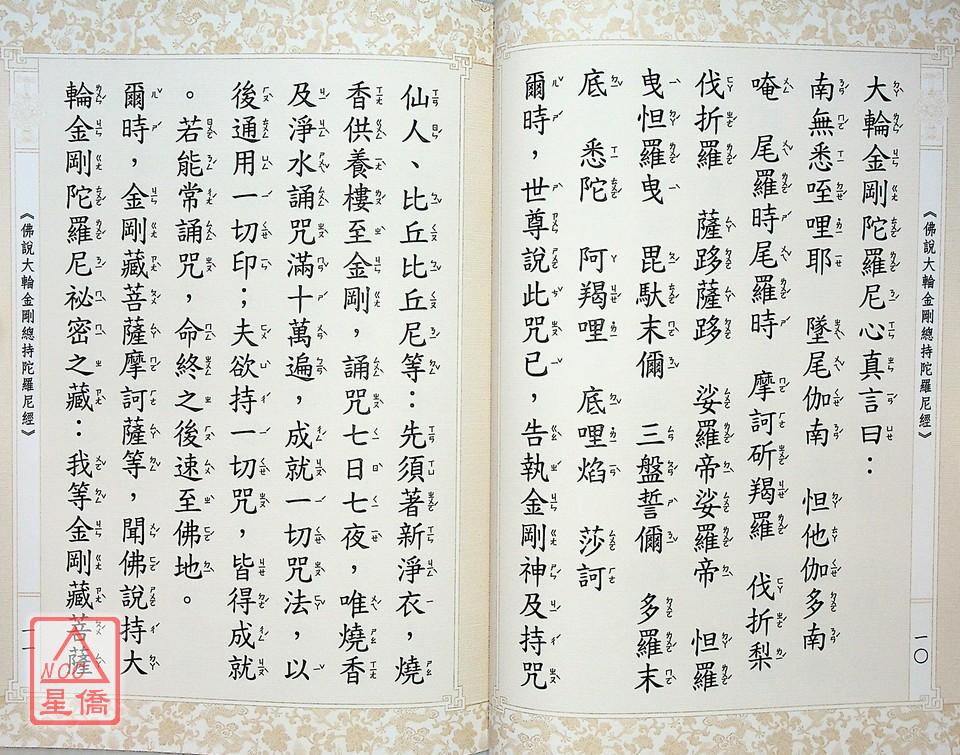 《佛說大輪金剛總持陀羅尼經》
一〇
大輪金剛陀羅尼心真言曰：
南無悉咥哩耶　墜尾伽南　怛他伽多南
唵　尾羅時尾羅時　摩訶斫羯羅　伐折梨
伐折羅　薩跢薩跢　娑羅帝娑羅帝　怛羅
曳怛羅曳　毘馱末儞　三盤誓儞　多羅末
底　悉陀　阿羯哩　底哩焰　莎訶
爾時，世尊說此咒已，告執金剛神及持咒
仙人、比丘比丘尼等：先須著新淨衣，燒
香供養樓至金剛，誦咒七日七夜，唯燒香
及淨水誦咒滿十萬遍，成就一切咒法，以
後通用一切印；夫欲持一切咒，皆得成就
。若能常誦咒，命終之後速至佛地。
爾時，金剛藏菩薩摩訶薩等，聞佛說持大
輪金剛陀羅尼祕密之藏：我等金剛藏菩薩
《佛說大輪金剛總持陀羅尼經》
一一
NCC
星僑